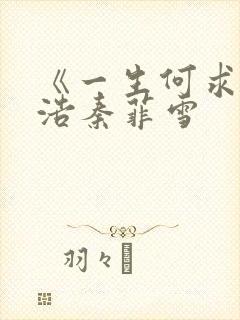 《一生何求
浩秦菲雪
羽々